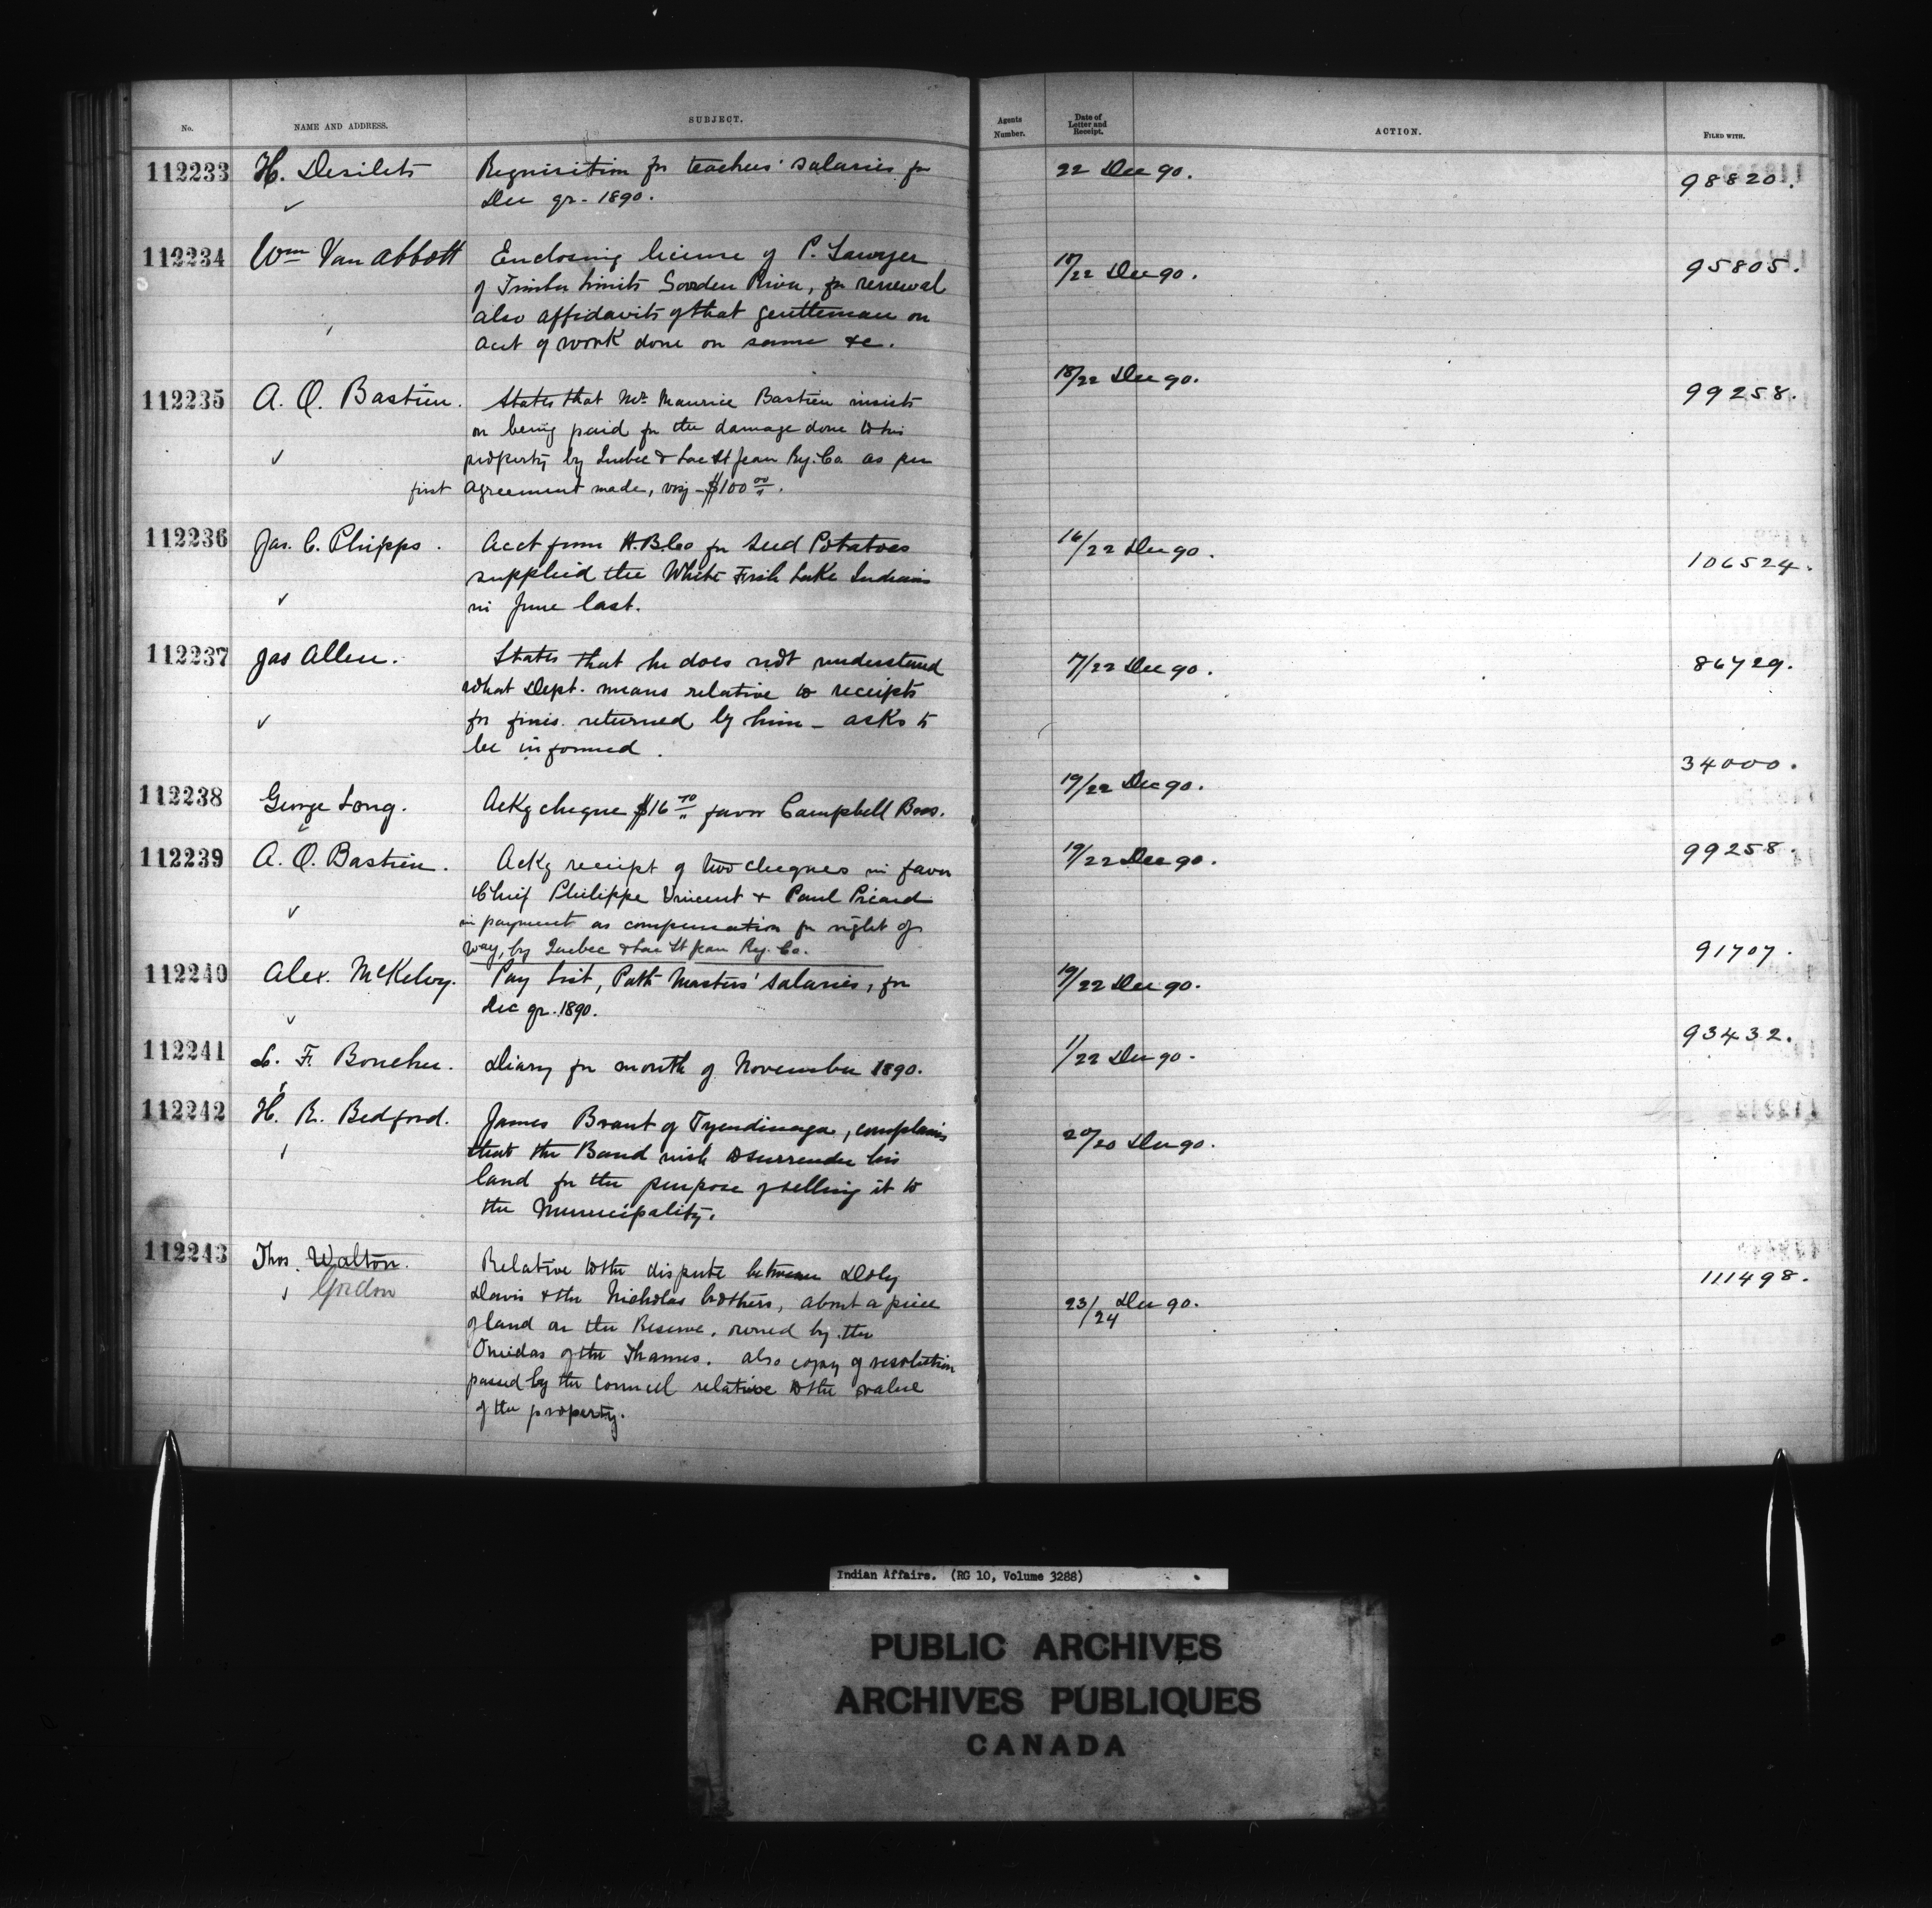 No. NAME AND ADDRESS. SUBJECT. Agents Number. Date of Letter and Receipt. ACTION. FILED WITH.
112233 H. Desilets Requisition for teachers' salaries for 22 Dec 90. 98820.
Dec qr. 1890.
112234 Wm Van Abbott Enclosing license of P. Sawyer 17/22 Dec 90. 95805.
of Timber Limits River, for renewal
also affidavits of that gentleman on
acct of work done on same &c.
112235 A. O. Bastien. States that Mr. Maurice Bastien insists 18/22 Dec 90. 99258.
on being paid for the damage done to his
property by Quebec & Lac St Jean Ry. Co. as per
first agreement made, viz - $100 00/".
112236 Jas. C. Phipps. Acct from H.B.Co for Seed Potatoes 16/22 Dec 90. 106524.
supplied the White Fish Lake Indians
in June last.
112237 Jas Allen. States that he does not understand 7/22 Dec 90. 86729.
what Dept. means relative to receipts
for fines. returned by him - asks to
be informed.
112238 George Long. Ackg cheque $16 70/" favor Campbell Bros. 19/22 Dec 90. 34000.
112239 A. O. Bastien. Ackg receipt of two cheques in favor 19/22 Dec 90. 99258.
Chief Philippe Vincent & Paul Picard
in payment as compensation for right of
way, by Quebec & Lac St Jean Ry. Co.
112240 Alex. McKelvy. Pay List, Path Masters' salaries, for 19/22 Dec 90. 91707.
Dec qr. 1890.
112241 L. F. Boucher. Diary for month of November 1890. 1/22 Dec 90. 93432.
112242 H. R. Bedford. James Brant of Tyendinaga, complains 20/20 Dec 90.
that the Band wish to surrender his
land for the purpose of selling it to
the Municipality.
112243 Thos. Walton. Relative to the dispute between Doly 23/24 Dec 90. 111498.
Gordon Davis & the Nicholas brothers, about a piece
of land on the Reserve, owned by the
Oneidas of the Thames. also copy of resolution
passed by the Council relative to the value
of the property.
Indian Affairs. (RG 10, Volume 3288)
PUBLIC ARCHIVES
ARCHIVES PUBLIQUES
CANADA